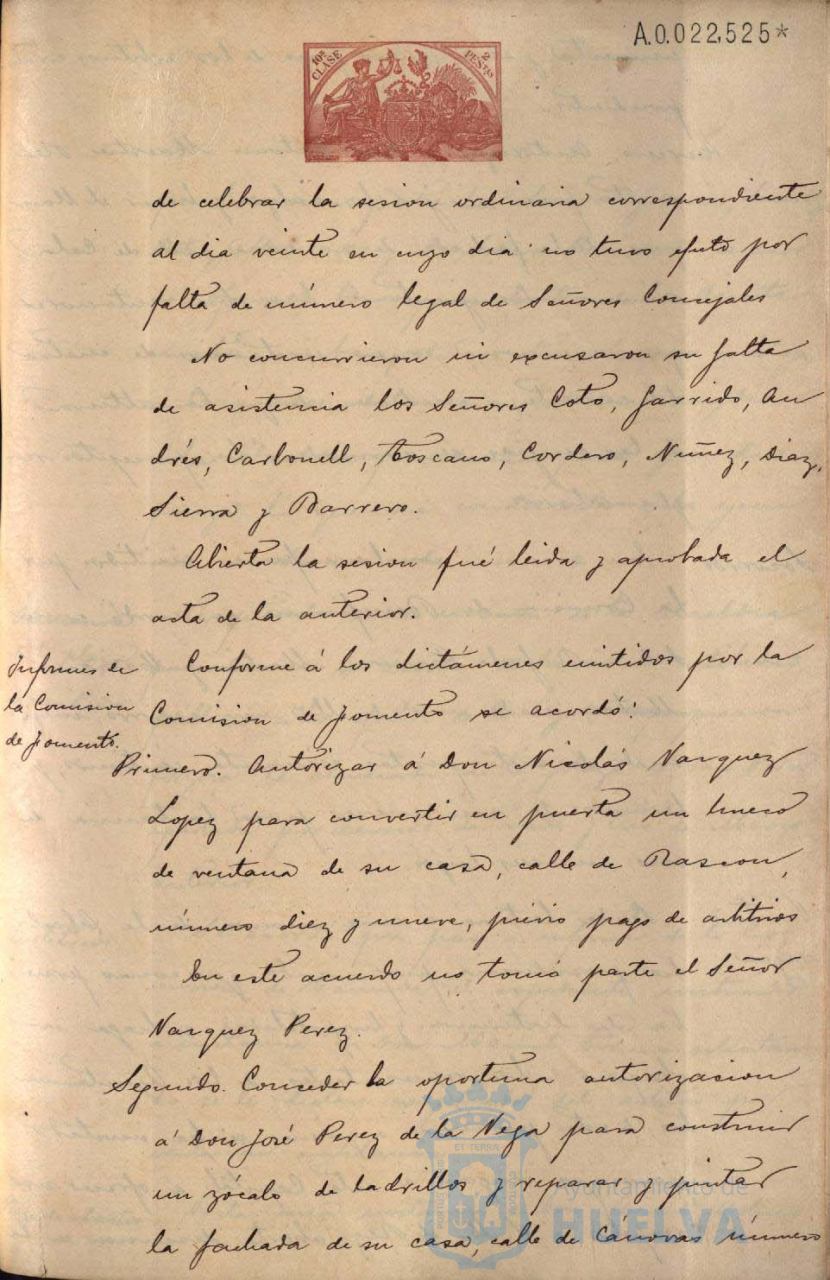 A.0.022,525*
10ª CLASE
2 PESETAS
de celebrar la sesion ordinaria correspondiente
al dia veinte en cuyo dia no tuvo efecto por
falta de número legal de Señores Concejales
No concurrieron ni excusaron su falta
de asistencia los Señores Coto, Garrido, An
drés, Carbonell, Toscano, Cordero, Nuñez, Diaz,
Sierra y Barrero.
Abierta la sesion fué leida y aprobada el
acta de la anterior.
Informes de
la Comision
de Fomento.
Conforme á los dictámenes emitidos por la
Comision de Fomento se acordó:
Primero. Autorizar á Don Nicolás Vazquez
Lopez para convertir en puerta un hueco
de ventana de su casa, calle de Rascon,
número diez y nueve, previo pago de arbitrios
En este acuerdo no tomó parte el Señor
Vazquez Perez.
Segundo. Conceder la oportuna autorizacion
á Don José Perez de la Vega para construir
un zócalo de ladrillos y reparar y pintar
la fachada de su casa, calle de Cánovas número
Ayuntamiento de
HUELVA